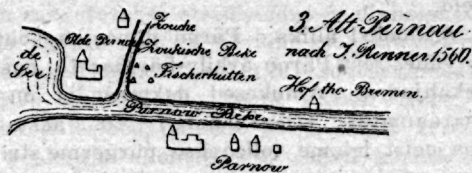 3. Alt Pernau
nach J. Renner 1560.
de
See
Olde Pernau
Zouche
Zoukische Beke
Fischerhütten
Hof tho Bremen.
Parnow Beke.
Parnow